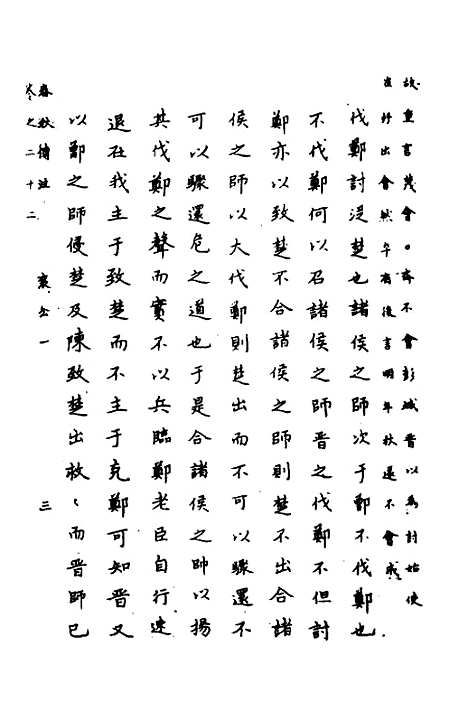 故重言茂會○齊不會彭城晉以為討始使
崔杼出會然卒有後言明年秋還不會戚
伐鄭討從楚也諸侯之師次于鄫不伐鄭也
不伐鄭何以召諸侯之師晉之伐鄭不但討
鄭亦以致楚不合諸侯之師則楚不出合諸
侯之師以大伐鄭則楚出而不可以驟還不
可以驟還危之道也于是合諸侯之帥以揚
其伐鄭之聲而實不以兵臨鄭老臣自行速
退在我主于致楚而不主于克鄭可知晉又
以鄫之師侵楚及陳致楚出救〻而晉師已
春秋傳注
卷之二十二 襄公一 三